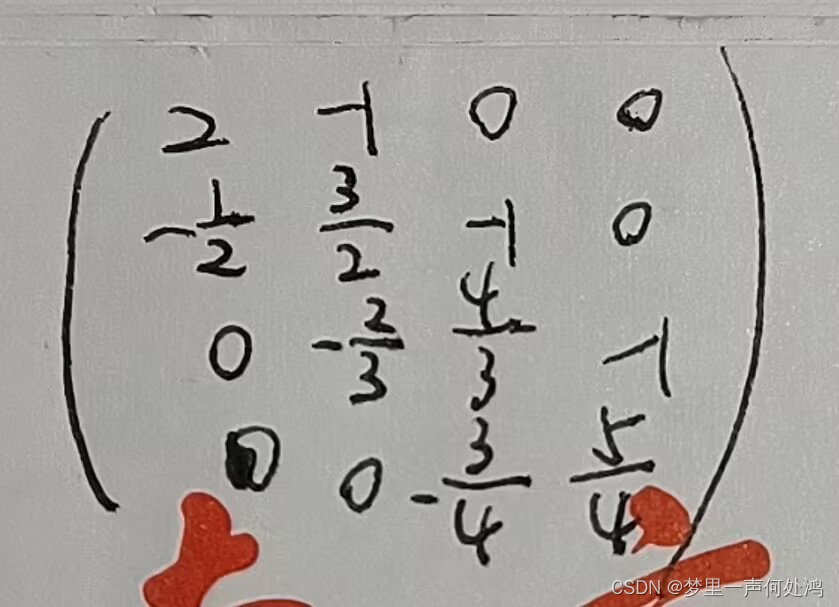 2 -1 0 0
-1/2 3/2 -1 0
0 -2/3 4/3 -1
0 0 -3/4 5/4
CSDN @梦里一声何处鸿